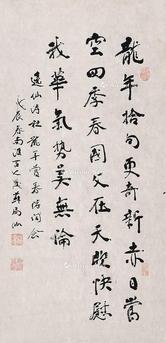 龍年拾句更奇新赤日當
空四季春國父在天欣快慰
我華氣勢美無倫
逸仙詩社龍年賞春清詞念
戊辰春南海